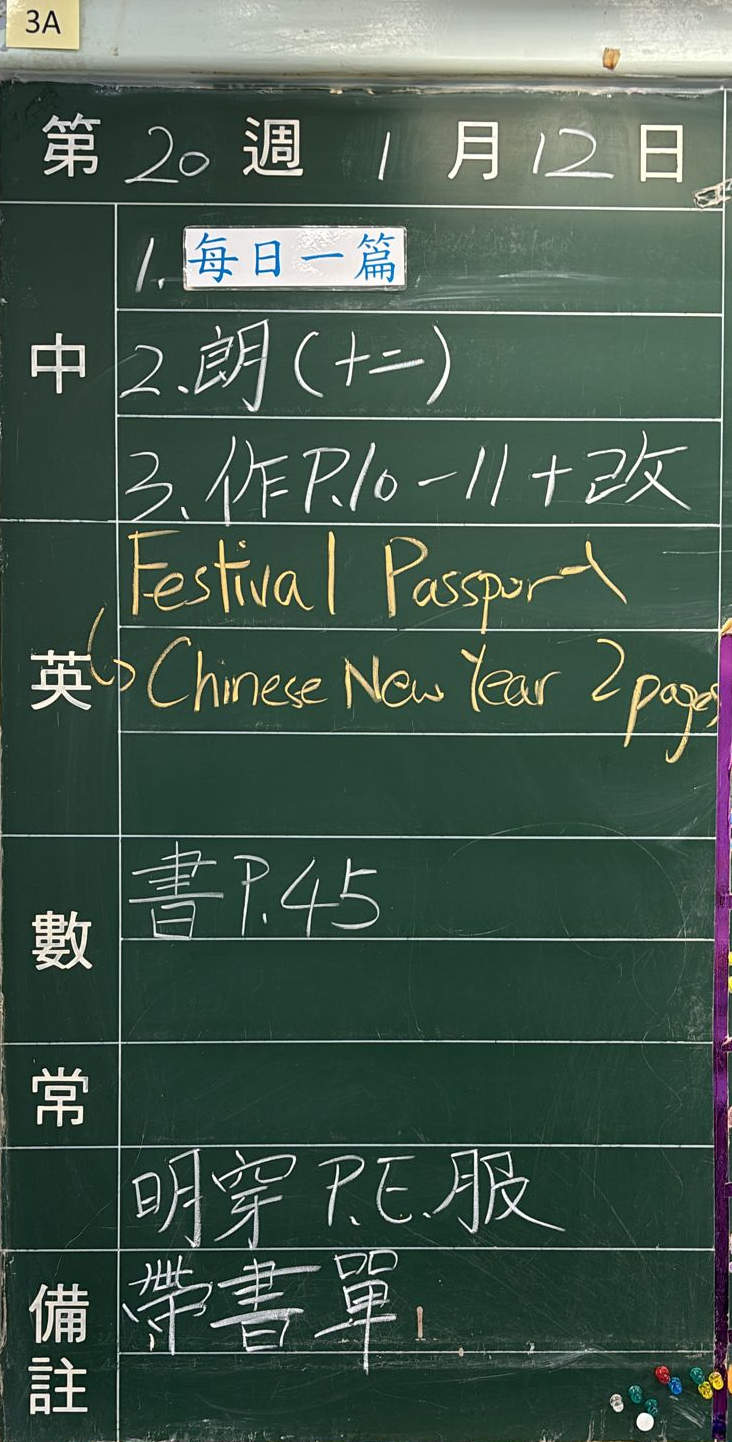 3A
第 20 週 1 月 12 日
中
1. 每日一篇
2. 朗(十二)
3. 作P.10-11+改
英
Festival Passport
↳ Chinese New Year 2 pages
數
書P.45
常
明穿P.E.服
備註
帶書單